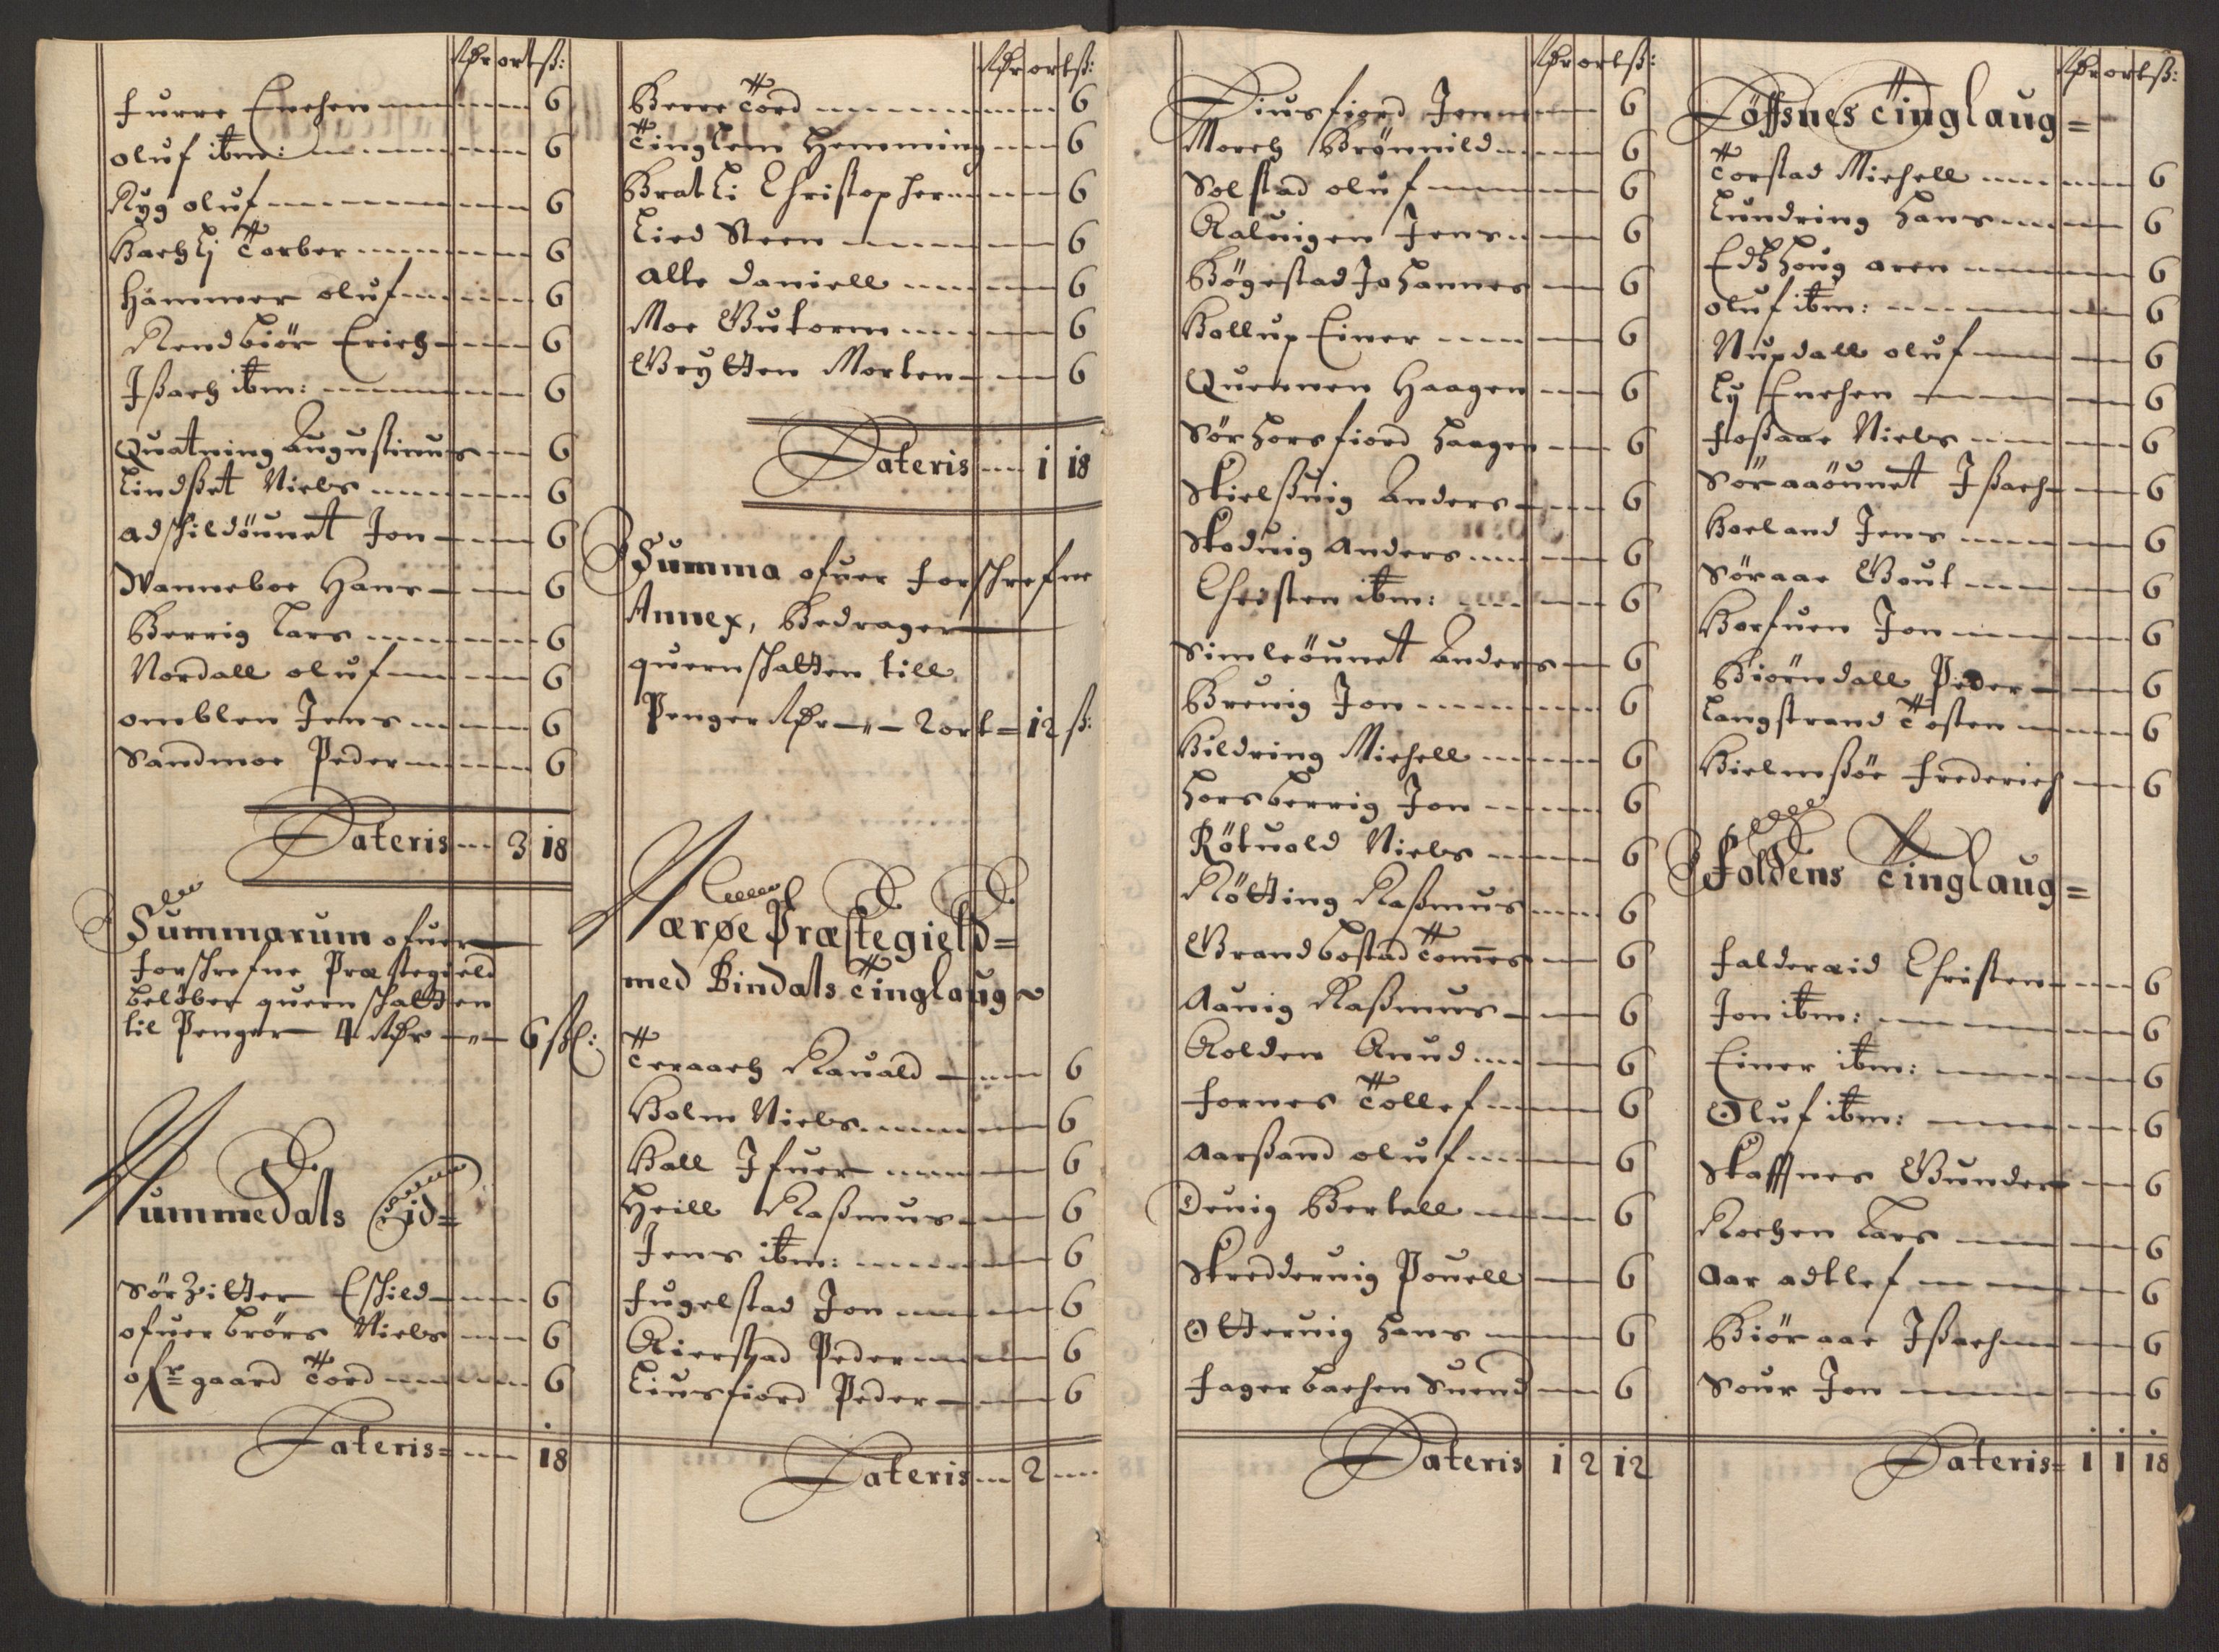 Rdr ort ß:
furre Enchen 6
oluf ibm: 6
Ryg oluf 6
Bachlj Torber 6
Hammer oluf 6
Rendbiör Erich 6
Jßach ibm: 6
Quatning Augustinus 6
Lindßet Niels 6
adschildöunet Jon 6
Wanneboe Hans 6
Berrig Lars 6
Nordall oluf 6
omblen Jens 6
Sandmoe Peder 6
Lateris 3 18
Summarum ofuer
forschrefne Præstegield
belöber quernschatten
til Penger 4 Rdr -"- 6 sk:
Nummedals Eid=
Sörzitter Eschild 6
ofuer brörs Niels 6
ofr gaard Tord 6
Lateris= 18
Rdr ort ß:
Berre Tord 6
Tinglem Hemming 6
Bratli Christopher 6
Lied Steen 6
alte Daniell 6
Moe Gutorm 6
Grytten Morten 6
Lateris 1 18
Summa ofuer forschrefne
Annex, Bedrager
quernschatten till
Penger Rdr -"- 2 ort = 12 ß:
Nærøe Præstegield=
med Bindals Tinglaug
Teraach Rauald 6
Holm Niels 6
Hall Jfuer 6
Heill Raßmus 6
Jens ibm: 6
fugelstad Jon 6
Kierstad Peder 6
Liusfiord Peder 6
Lateris 2
Rdr ort ß:
Liusfiord Jenn 6
Morch Brönnild 6
Solstad oluf 6
Kaluigen Jens 6
Bögestad Johannes 6
Kollup Einer 6
Quennen Haagen 6
Sörhorsfiord Haagen 6
Skielßuig Anders 6
Skoduig Anders 6
Christen ibm: 6
Simleöunet Anders 6
Breuig Jon 6
Kildring Michell 6
Horsberrig Jon 6
Rötuold Niels 6
Rötting Raßmus 6
Brandbostad Tomes 6
Aauig Raßmus 6
Kolden Knud 6
fornes Tollef 6
Aarßand oluf 6
Deuig Bertell 6
Skredderuig Pouell 6
Otteruig Hans 6
fagerbachen Suend 6
Lateris 1 2 12
Rdr ort ß:
Löffsnes Tinglaug=
Torstad Michell 6
Lundring Hans 6
Edßhoug aren 6
oluf ibm: 6
Nupdall oluf 6
Ly Enchen 6
foßaae Niels 6
Söraaöunet Jßach 6
Hoeland Jens 6
Söraae Gout 6
Horfuen Jon 6
Biörndall Peder 6
Langstrand Tosten 6
Hielmßöe Frederich 6
Foldens Tinglaug=
falderæid Christen 6
Jon ibm: 6
Einer ibm: 6
Oluf ibm: 6
Skaffnes Gunder 6
Kochen Lars 6
Aar adtlef 6
Biöraae Jßach 6
Sour Jon 6
Lateris= 1 1 18